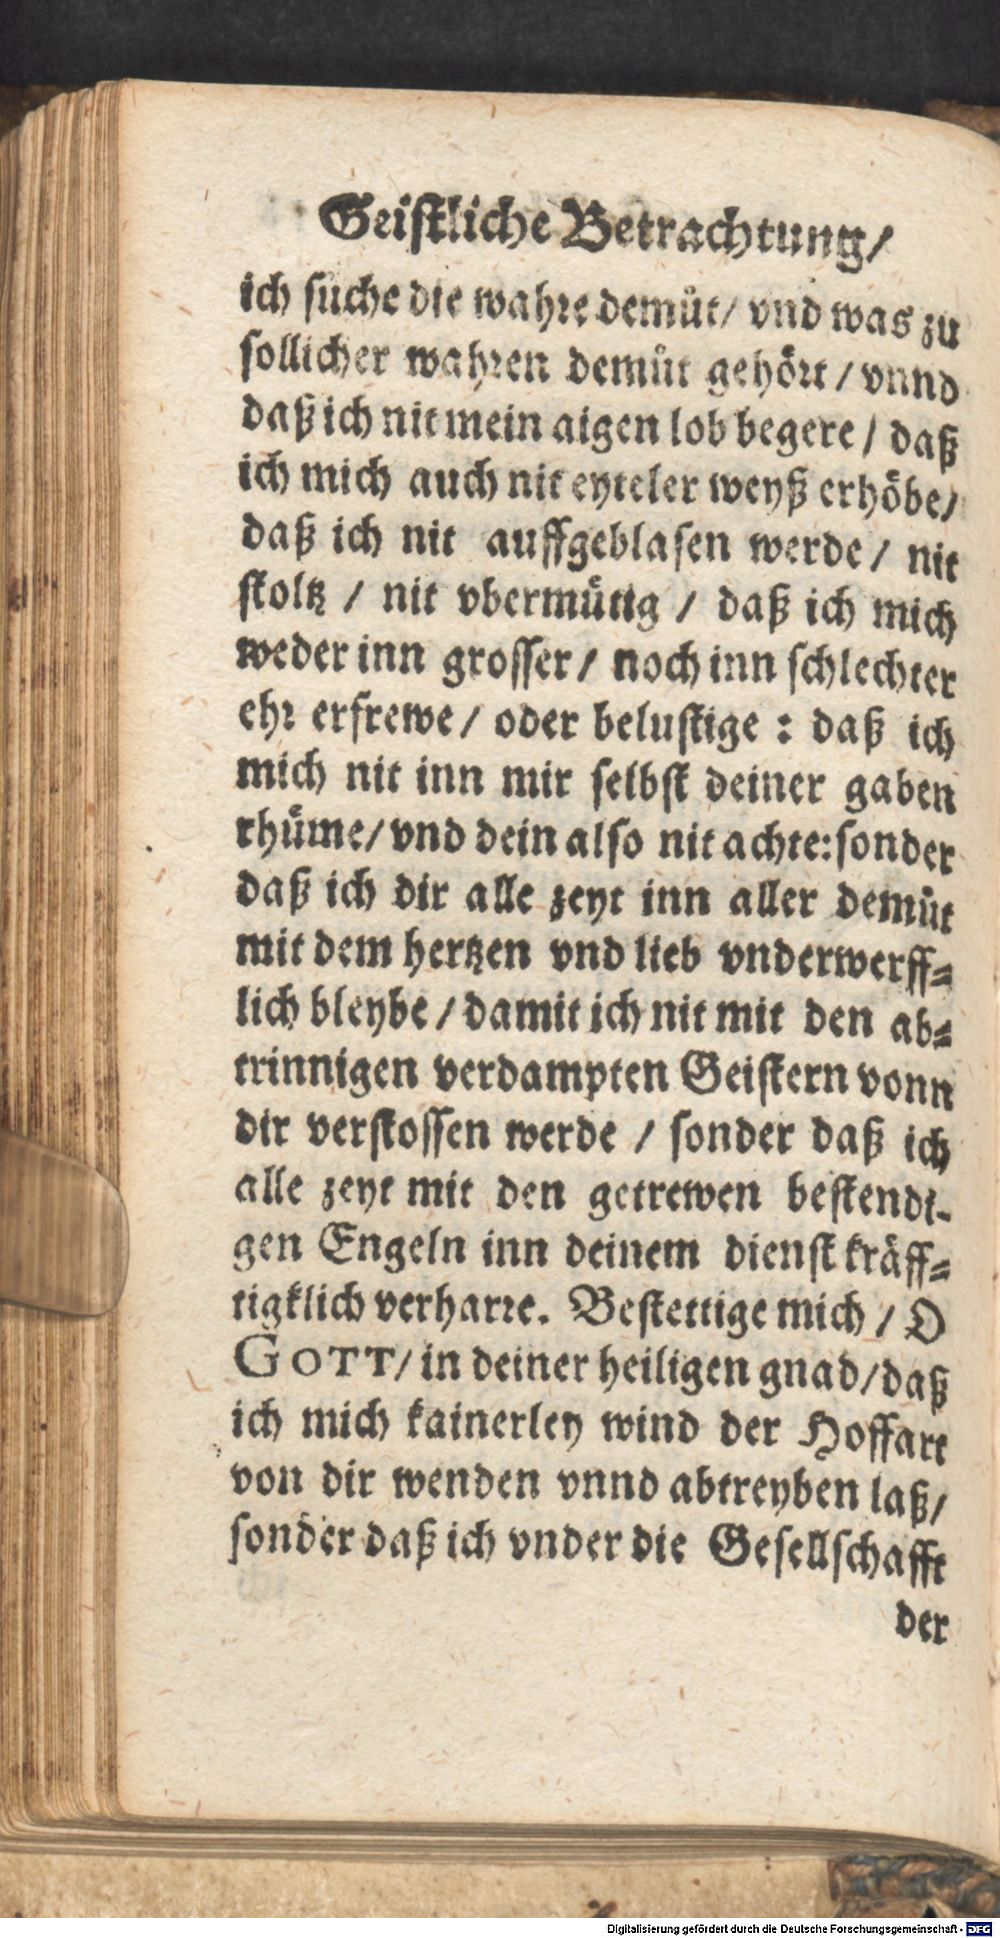 Geistliche Betrachtung/
ich suche die wahre demůt/ vnd was zu
sollicher wahren demůt gehört / vnnd
daß ich nit mein aigen lob begere / daß
ich mich auch nit eyteler weyß erhöbe/
daß ich nit auffgeblasen werde / nit
stoltz / nit vbermütig / daß ich mich
weder inn grosser / noch inn schlechter
ehr erfrewe / oder belustige : daß ich
mich nit inn mir selbst deiner gaben
rhüme/ vnd dein also nit achte: sonder
daß ich dir alle zeyt inn aller demůt
mit dem hertzen vnd lieb vnderwerff⸗
lich bleybe / damit ich nit mit den ab⸗
trinnigen verdampten Geistern vonn
dir verstossen werde / sonder daß ich
alle zeyt mit den getrewen bestendi-
gen Engeln inn deinem dienst kräff⸗
tigklich verharre. Bestettige mich / O
GOTT/ in deiner heiligen gnad/ daß
ich mich kainerley wind der Hoffart
von dir wenden vnnd abtreyben laß/
sonder daß ich vnder die Gesellschafft
der
Digitalisierung gefördert durch die Deutsche Forschungsgemeinschaft - DFG